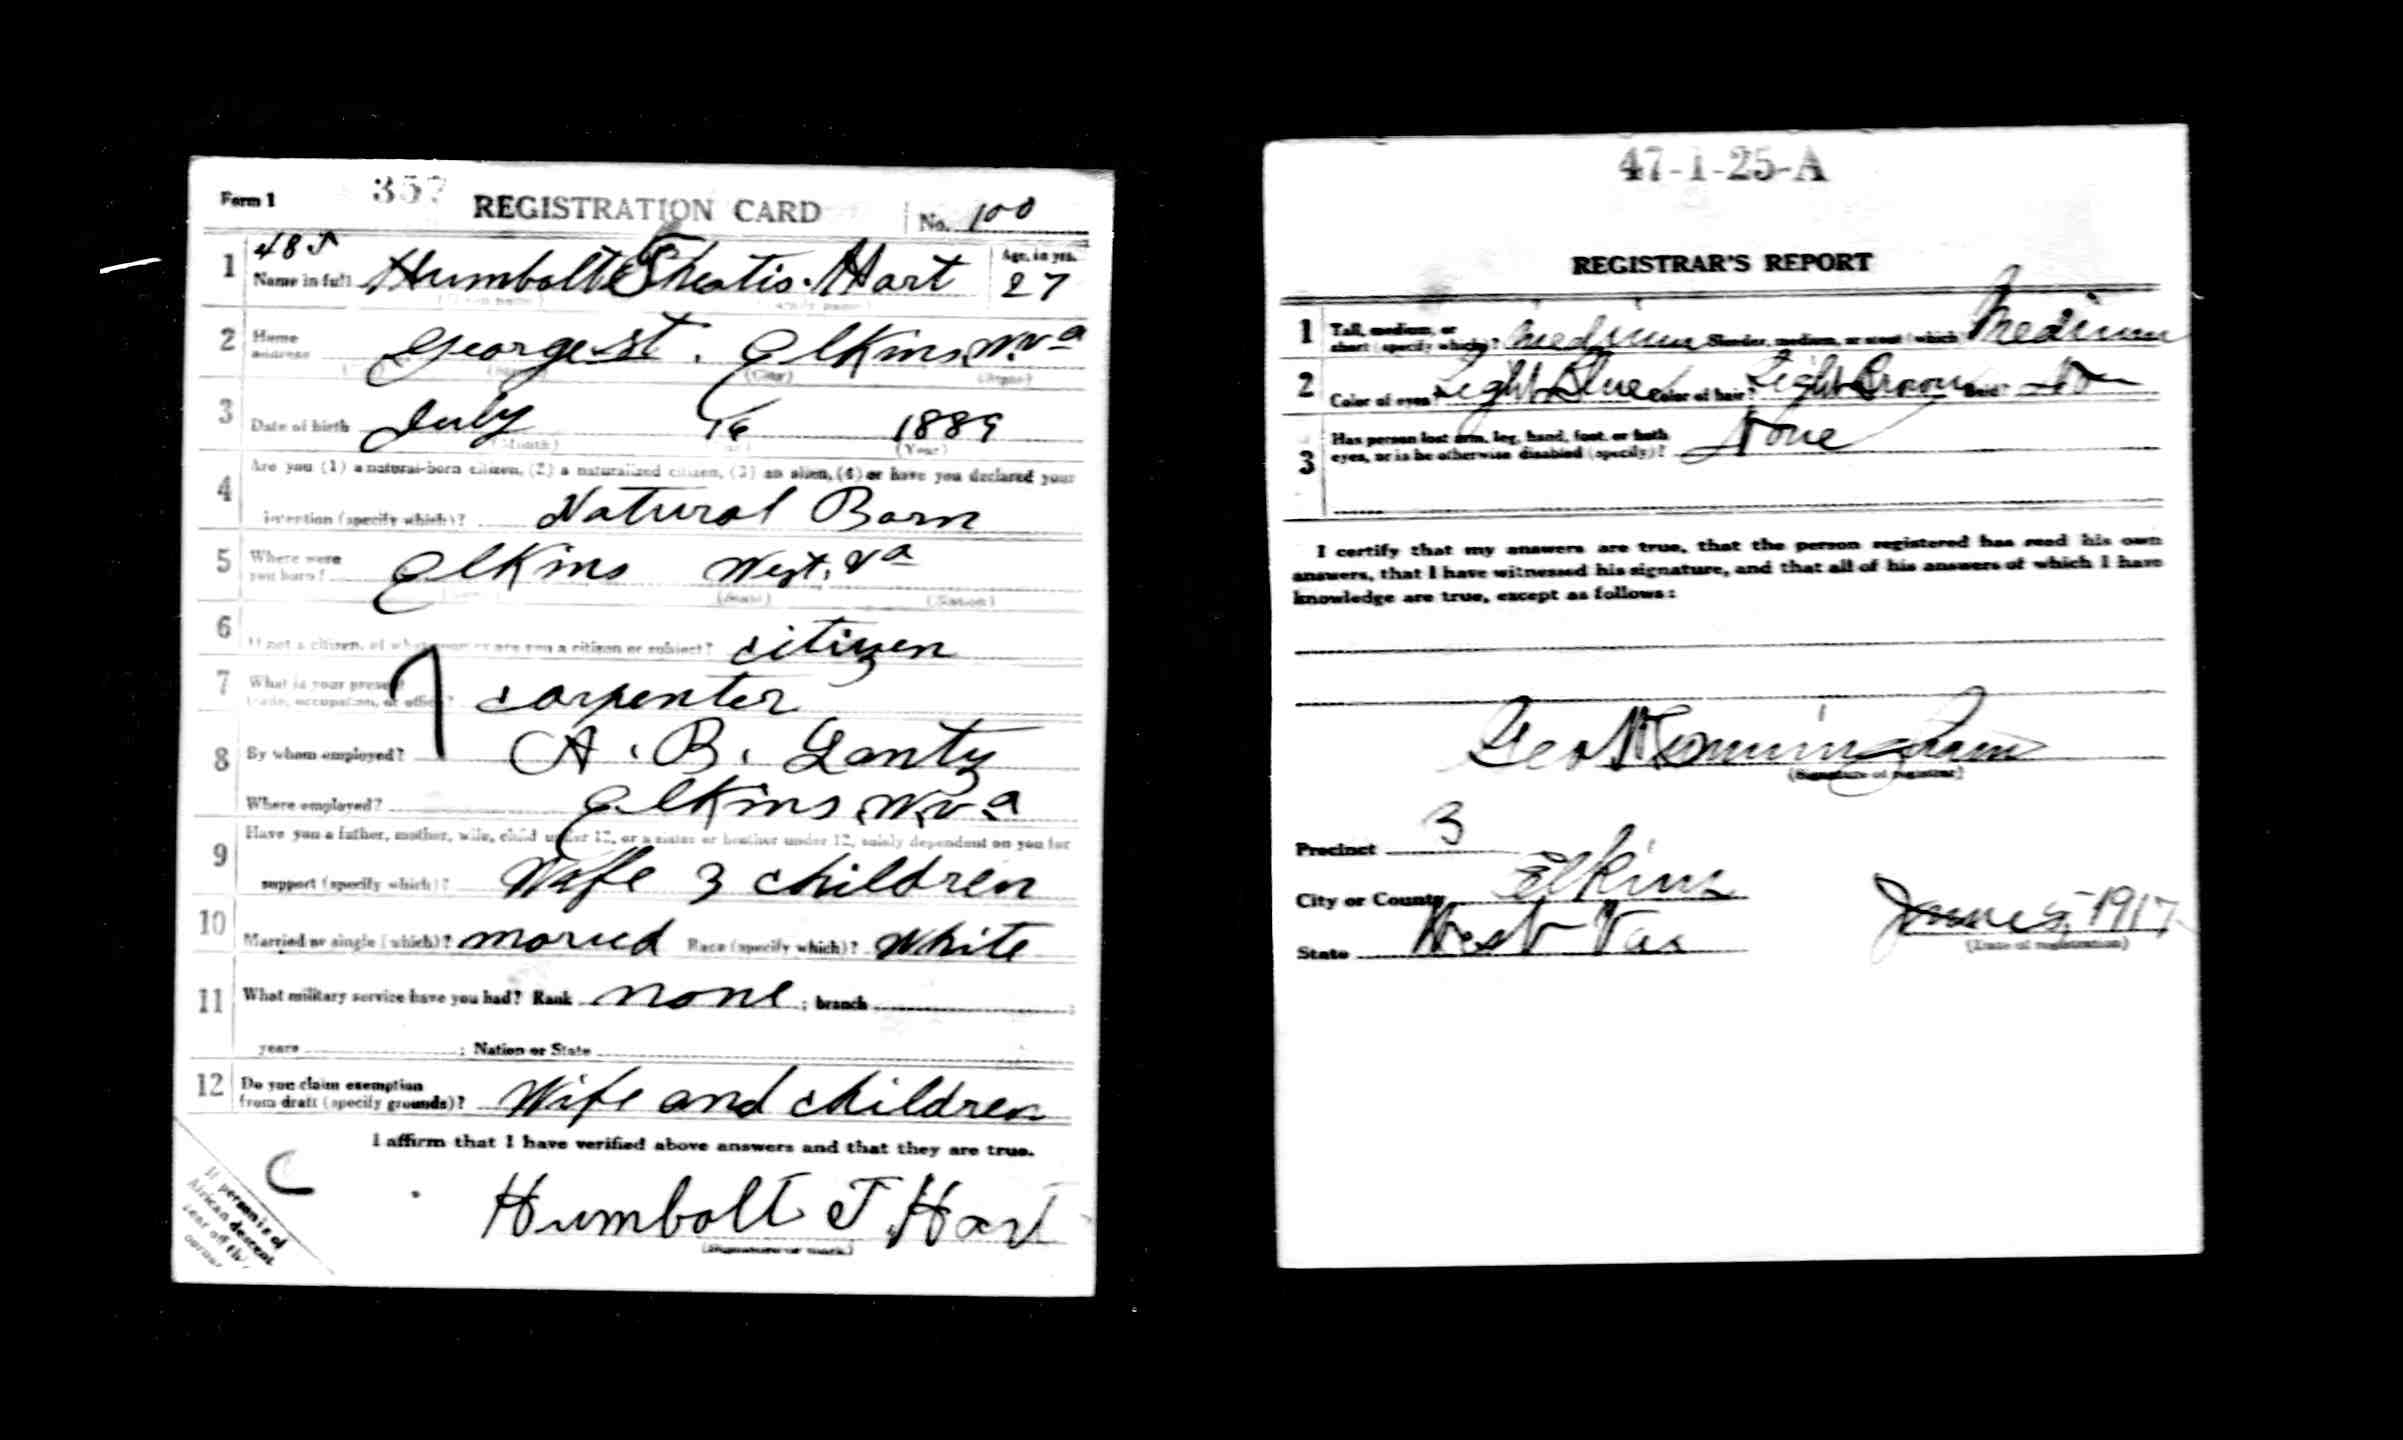 Form 1 357 REGISTRATION CARD No. 100
485
1 Name in full Humbolt Theatis Hart Age, in yrs. 27
(Given name) (Family name)
2 Home address George st. Elkins W.va
(No.) (Street) (City) (State)
3 Date of birth July 16 1889
(Month) (Day) (Year)
4 Are you (1) a natural-born citizen, (2) a naturalized citizen, (3) an alien, (4) or have you declared your
intention (specify which)? Natural Born
5 Where were you born? Elkins West. Va
(Town) (State) (Nation)
6 If not a citizen, of what country are you a citizen or subject? citizen
7 What is your present trade, occupation, or office? carpenter
8 By whom employed? A. B. Lantz
Where employed? Elkins W.va
9 Have you a father, mother, wife, child under 12, or a sister or brother under 12, solely dependent on you for
support (specify which)? Wife 3 children
10 Married or single (which)? maried Race (specify which)? White
11 What military service have you had? Rank none ; branch ;
years ; Nation or State
12 Do you claim exemption from draft (specify grounds)? Wife and children
I affirm that I have verified above answers and that they are true.
C
Humbolt T. Hart
(Signature or mark)
If person is of African descent tear off this corner
47-1-25-A
REGISTRAR'S REPORT
1 Tall, medium, or short (specify which)? Medium Slender, medium, or stout (which)? Medium
2 Color of eyes? Light Blue Color of hair? Light Brown Bald? No
3 Has person lost arm, leg, hand, foot, or both
eyes, or is he otherwise disabled (specify)? None
I certify that my answers are true, that the person registered has read his own
answers, that I have witnessed his signature, and that all of his answers of which I have
knowledge are true, except as follows:
Geo Cunningham
(Signature of registrar)
Precinct 3
City or County Elkins
State West Va June 5, 1917
(Date of registration)